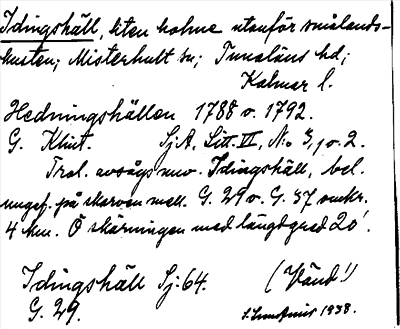 Idingshäll, liten holme utanför smålands-
kusten; Misterhult sn; Tunaläns hd;
Kalmar l.
Hedningshällen 1788 o. 1792.
G. Klint. Sj.A. Litt. II, No 3, 1 o. 2.
Trol. avsågs nuv. Idingshäll, bel.
ungef. på skarven mell. G. 29 o. G. 37 omkr.
4 km. Ö skärningen med längdgrad 20'.
Idingshäll Sj: 64. (Vänd!)
G. 29. 1938.